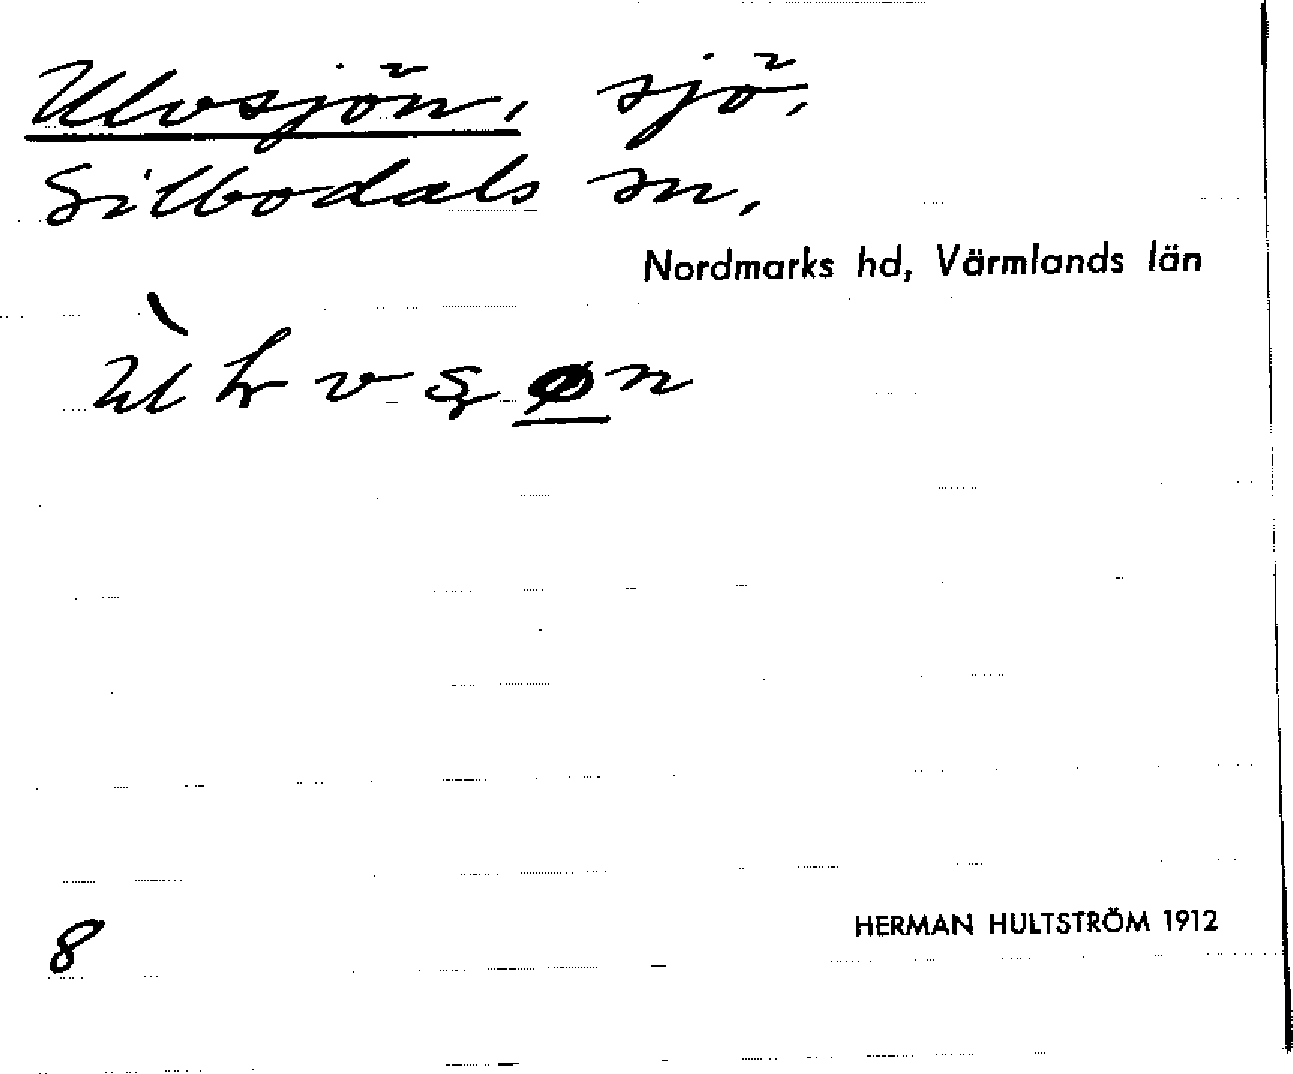 Ulvsjön, sjö,
Silbodals sn,
Nordmarks hd, Värmlands län
8
HERMAN HULTSTRÖM 1912